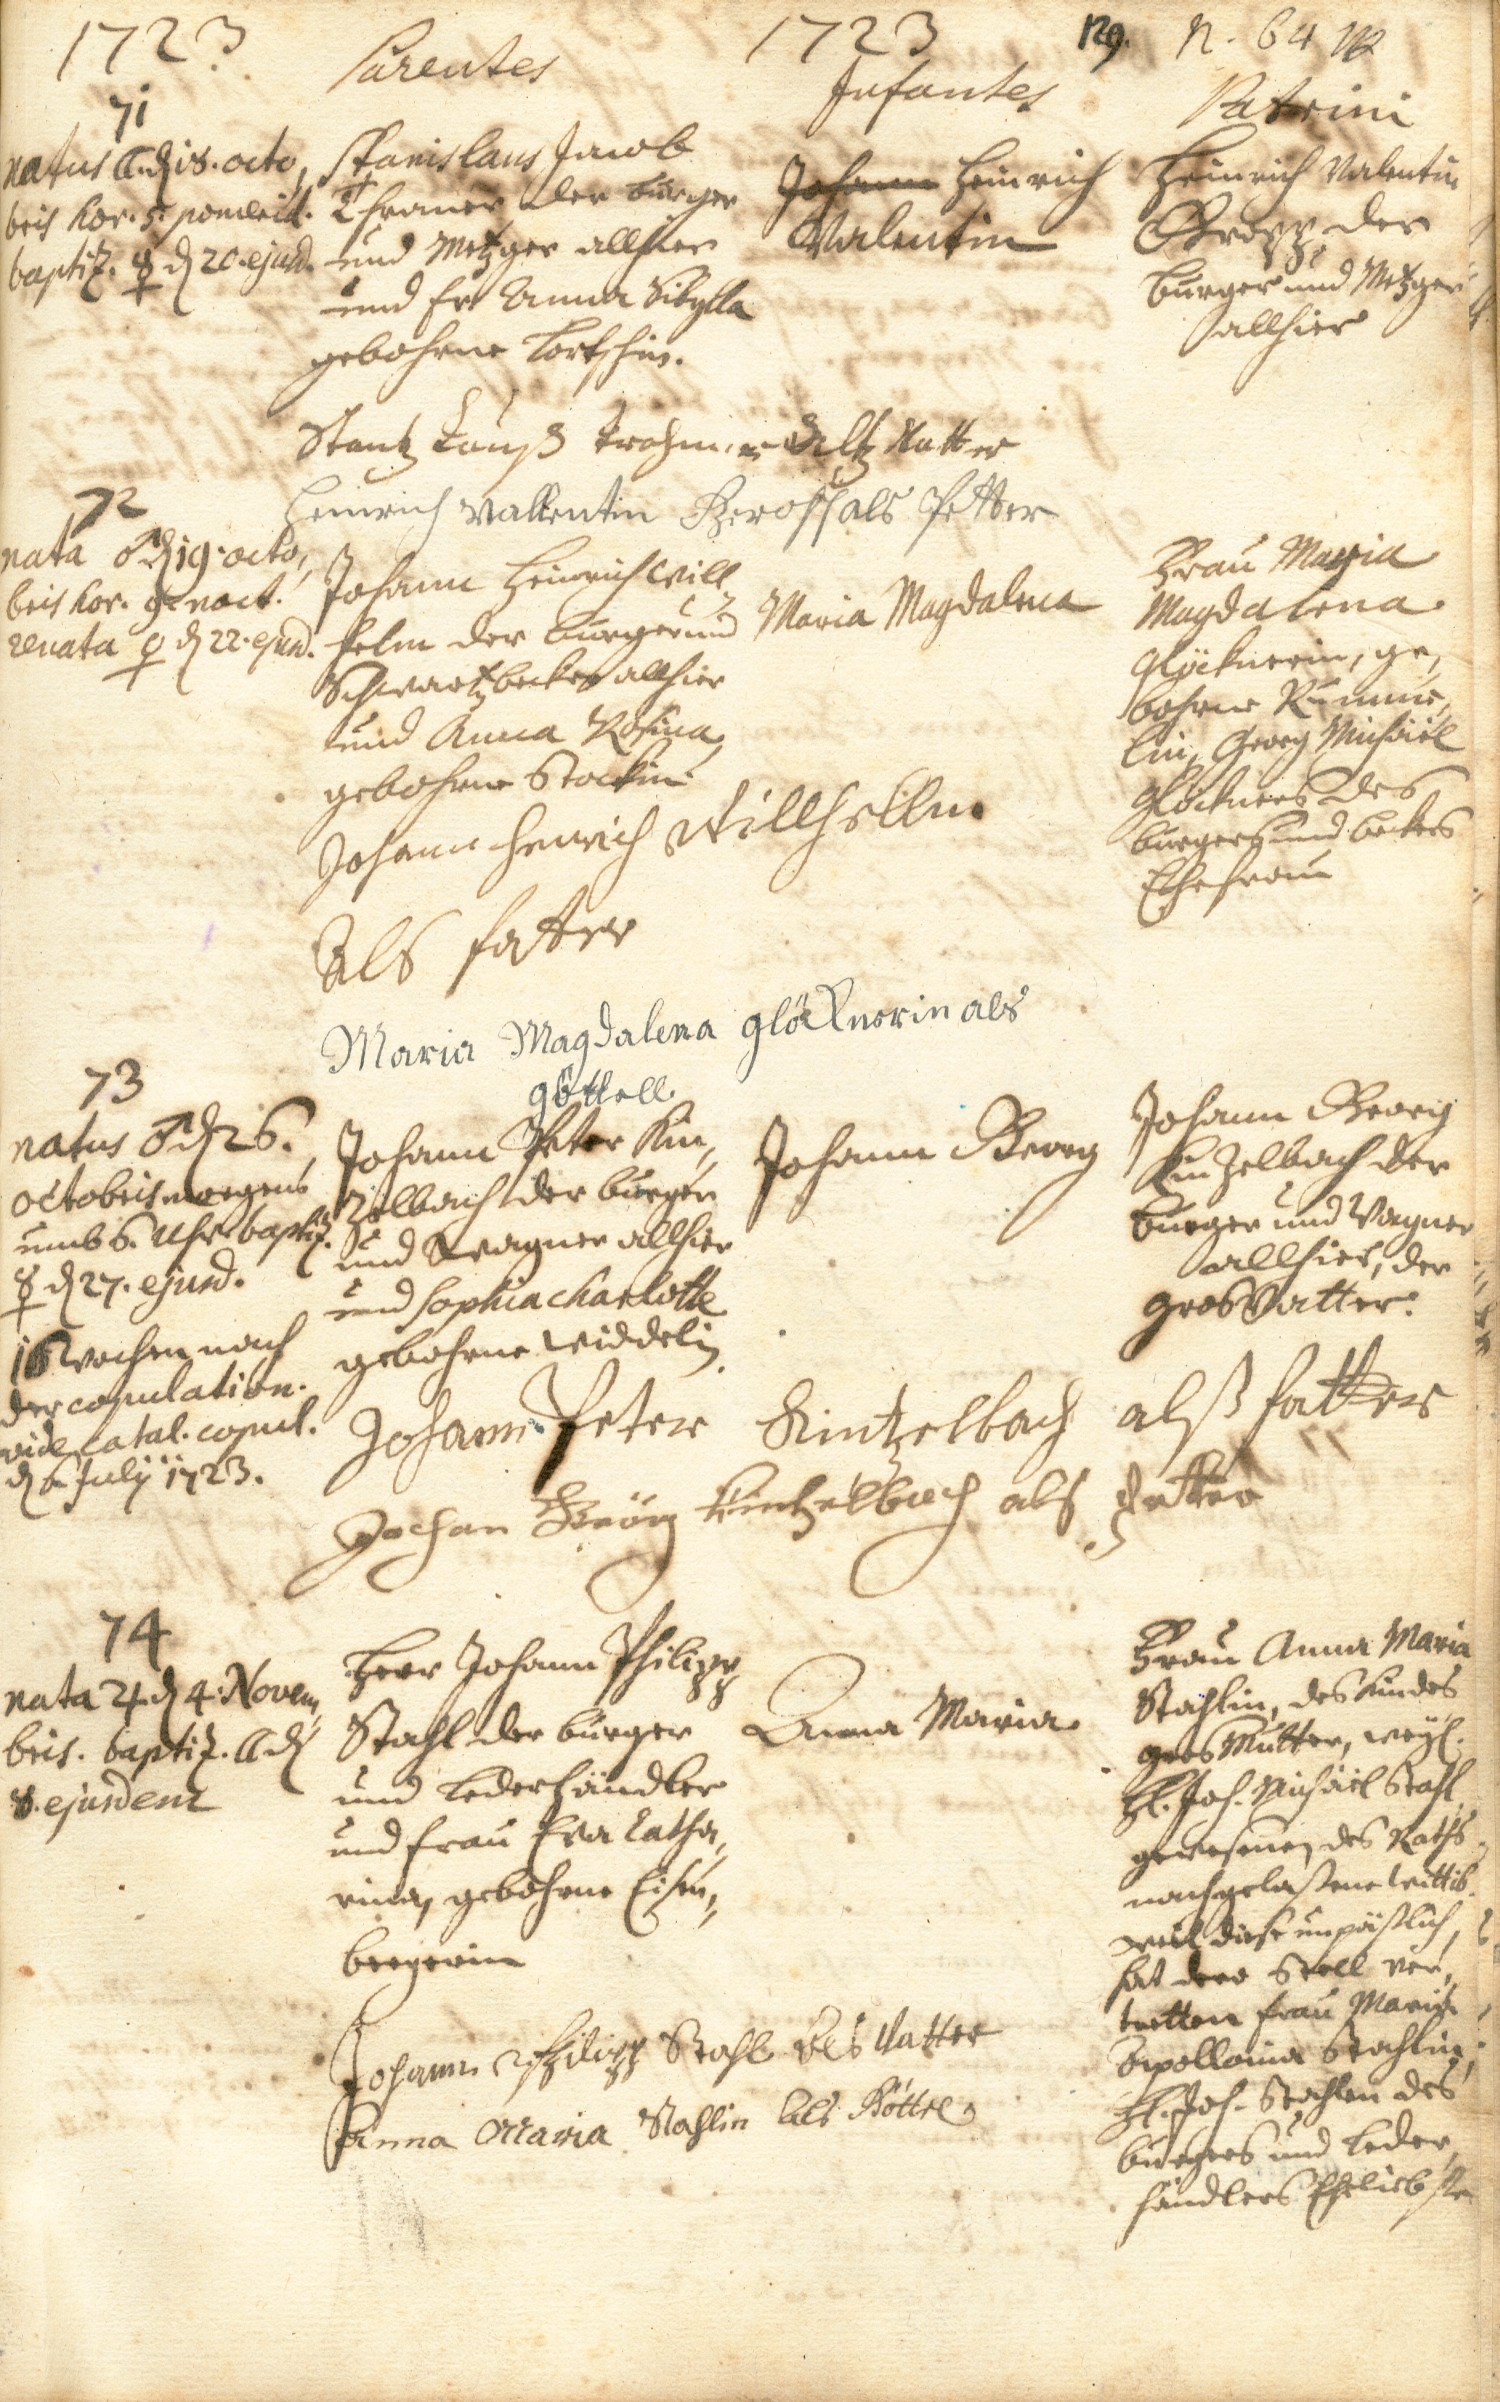 1723 Parentes 1723 Infantes 129. N. 64 Patrini
71
natus ☾. d 18. octo,
bris hor. 5. pomerid.
baptiz. ☿ d 20. ejusd.
Stanislaus Jacob
Thraner der burger
und Metzger allhier
und fr. Anna Sibylla
gebohrne
Johann Heinrich
Valentin
Heinrich Valentin
Gropp, der
burger und Metzger
allhier
als Vatter
Heinrich Vallentin als Petter
72
nata ♂ d 19. octo,
bris hor. 9. noct.
renata ♀ d 22. ejusd.
Johann Heinrich Will,
helm der burger und
Schwartzbecker allhier
und Anna Rosina,
gebohrne Stockin
Maria Magdalena
Frau Maria
Magdalena
Glöcknerin, ge,
bohrne Rumme,
lin, Georg Michäel
Glöckners des
burgers und beckers
Ehefrau
Johann Henrich Willhellm
Als fatter
Maria Magdalena glöcknerin als
göttell
73
natus ♂ d 26.
octobris morgens
umb 6. Uhr baptiz.
☿ d 27. ejusd.
16 wochen nach
der copulation.
vide catal. copul.
d 6. July 1723.
Johann Peter Kin,
zelbach der burger
und Wagner allhier
und Sophia Charlotte
gebohrne Widdelin
Johann Georg
Johann Georg
Kinzelbach der
burger und Wagner
allhier, der
grosVatter.
Johann Peter Kintzelbach alß fatter
Jochan Geörg Kintzelbach als Petter
74
nata ♃ d 4. Novem,
bris. baptiz. ☾ d
8. ejusdem
Herr Johann Philipp
Stahl der burger
und Lederhändler
und frau Eva Catha,
rina, gebohrne Eisen,
bergerin
Anna Maria
Frau Anna Maria
Stahlin, des Kindes
grosMutter, weyl.
H. Joh. Michäel Stahl
gewesenen des Raths
nachgelaßene Wittib.
weil diese unpäßlich,
hat dero Stell ver,
tretten frau Maria
Apollonia Stahlin,
H. Joh. Stahlen des
burgers und Leder,
händlers Eheliebste
Johann Philipp Stahl Als Vatter
Anna Maria Stahlin als Göttel